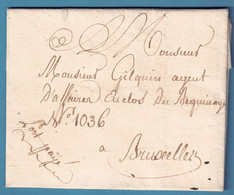 A Monsieur
Monsieur Gilquin agent
D'affaires Enclos Du Beguinage
N.º 1036
à Bruxelles
Port payé